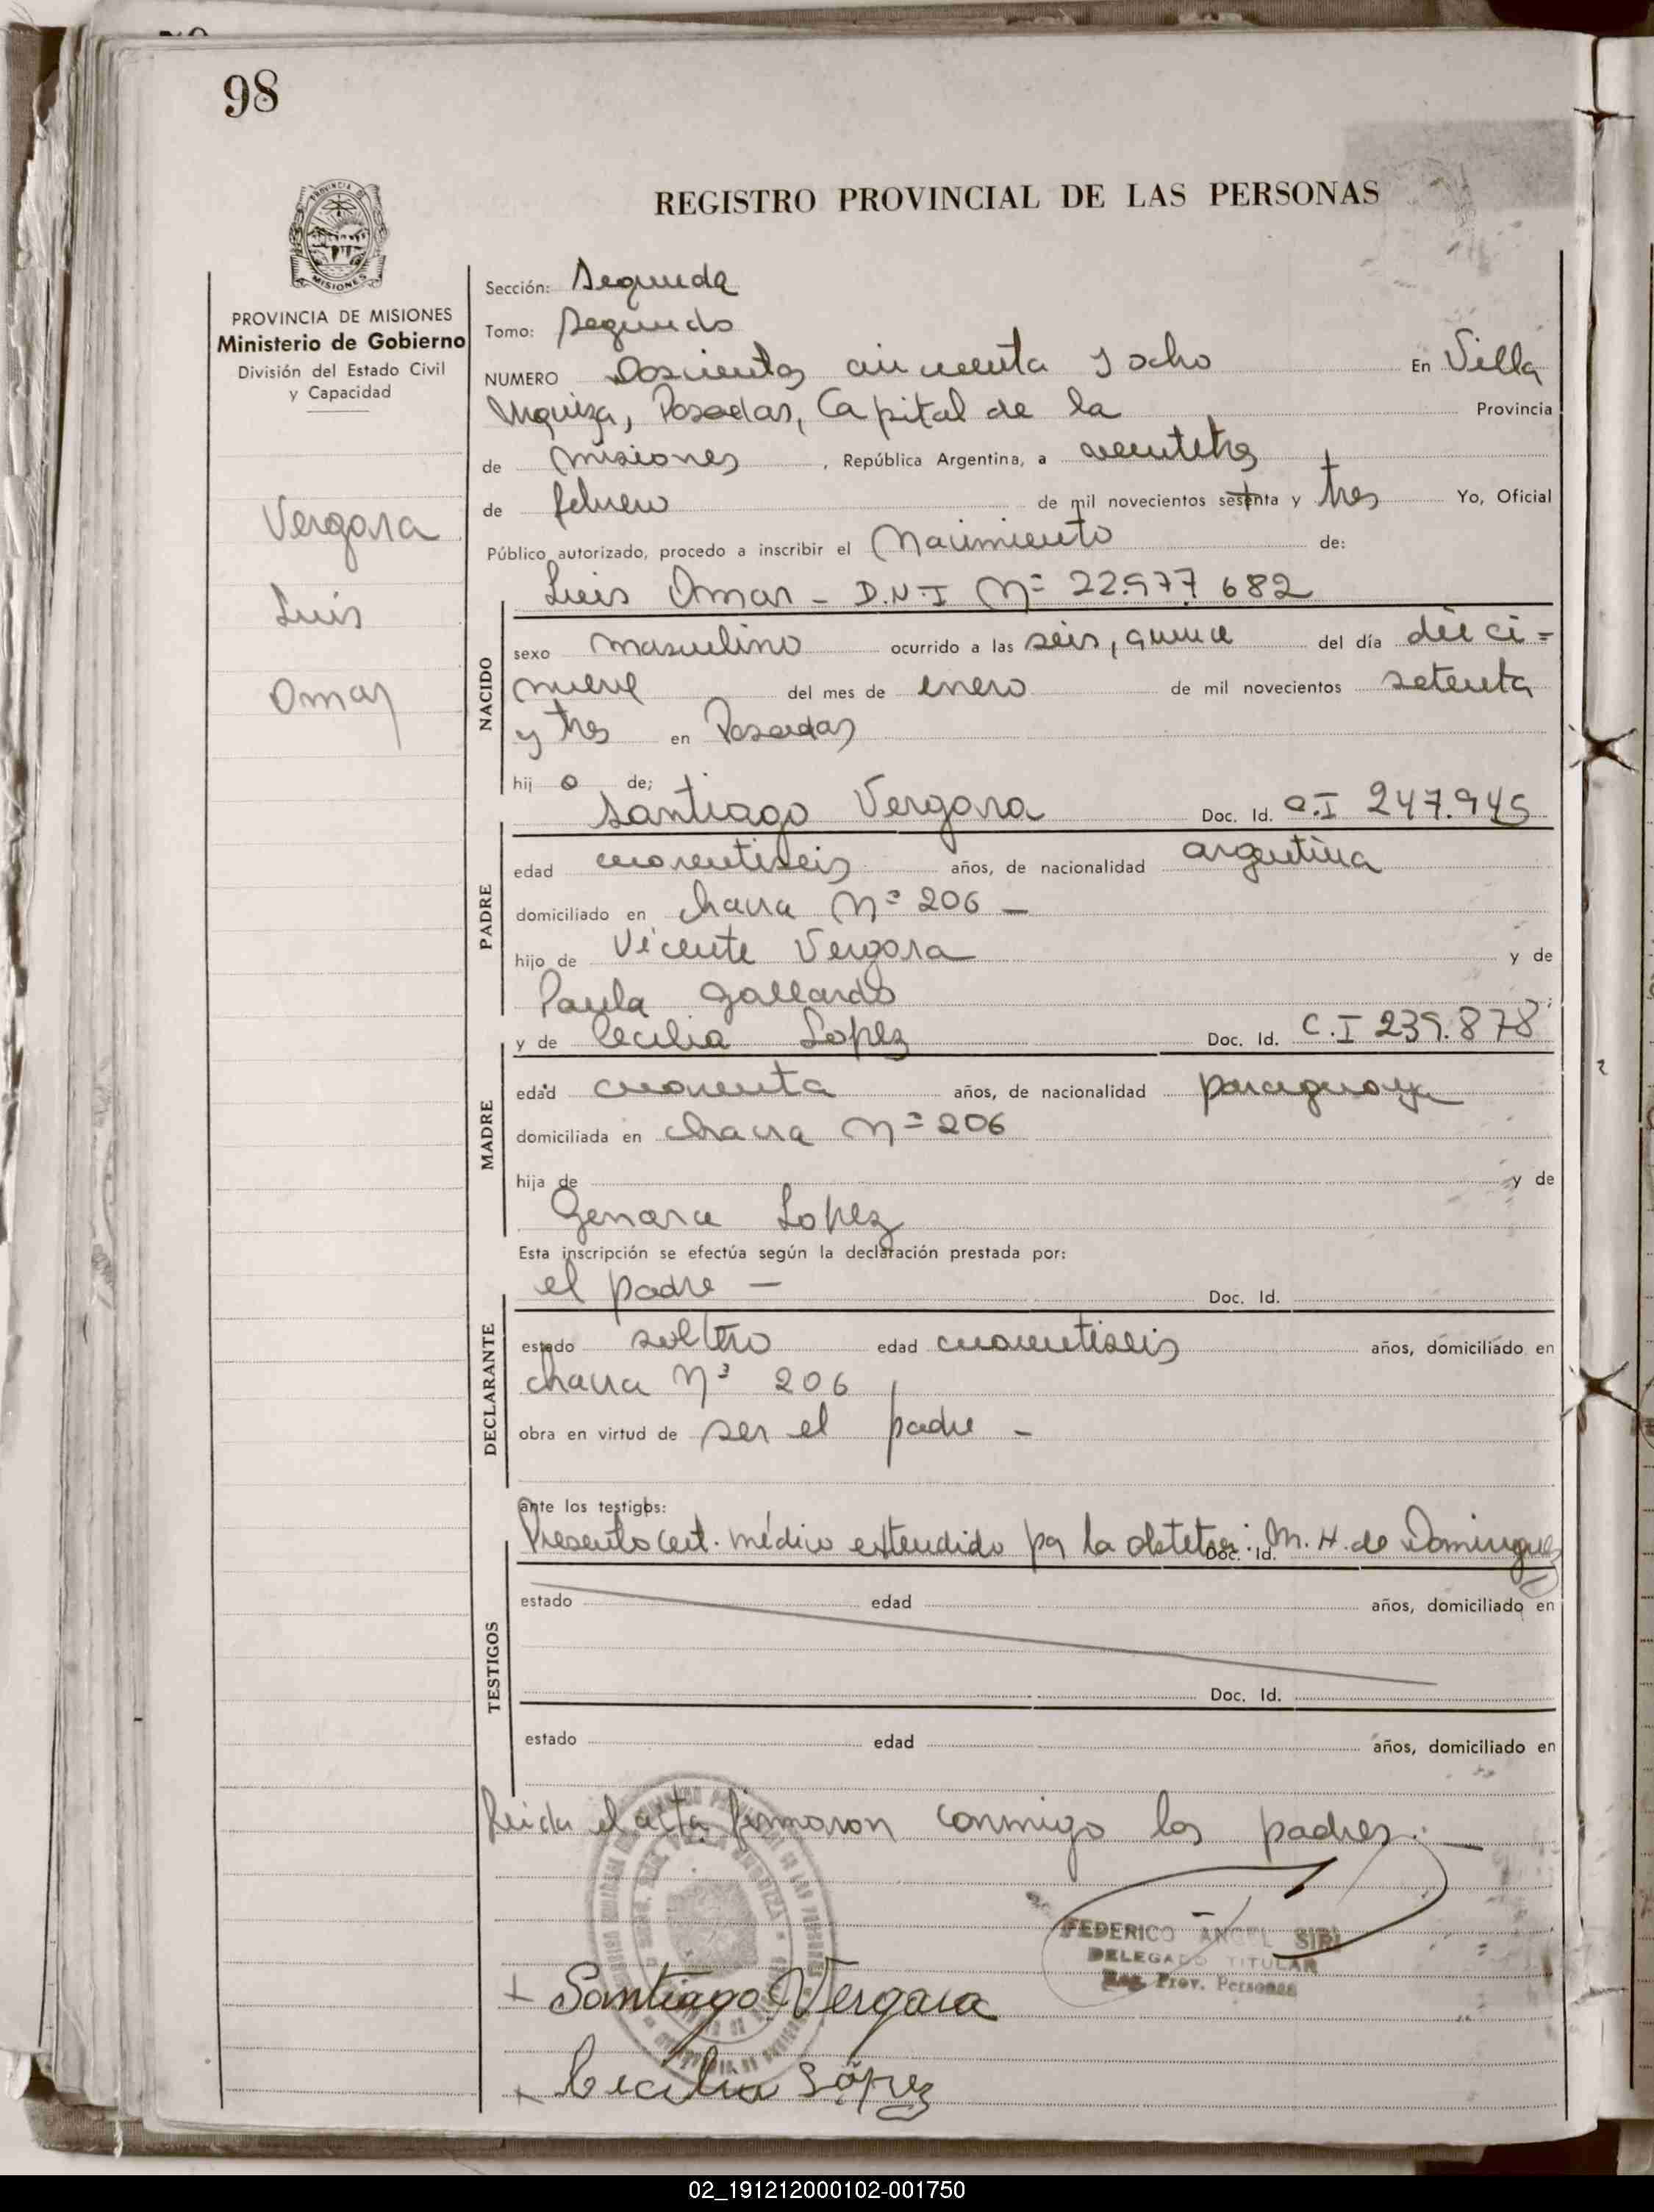 98
REGISTRO PROVINCIAL DE LAS PERSONAS
PROVINCIA DE MISIONES
Ministerio de Gobierno
División del Estado Civil
y Capacidad
Vergara
Luis
Omar
Sección: Segunda
Tomo: Segundo
NUMERO Doscientos cincuenta y ocho En Villa
Urquiza, Posadas, Capital de la Provincia
de misiones, República Argentina, a veintitres
de febrero de mil novecientos setenta y tres Yo, Oficial
Público autorizado, procedo a inscribir el Nacimiento de:
Luis Omar - D.N.I Nº 22.977.682
NACIDO
sexo masculino ocurrido a las seis, quince del día dieci=
nueve del mes de enero de mil novecientos setenta
y tres en Posadas
hijo de;
Santiago Vergara Doc. Id. C.I 247.945
PADRE
edad cuarentiseis años, de nacionalidad argentina
domiciliado en chacra Nº 206 -
hijo de Vicente Vergara y de
Paula Gallardo
y de Cecilia Lopez Doc. Id. C.I 239.878
MADRE
edad cuarenta años, de nacionalidad paraguaya
domiciliada en chacra Nº 206
hija de y de
Genara Lopez
Esta inscripción se efectúa según la declaración prestada por:
el padre - Doc. Id.
DECLARANTE
estado soltero edad cuarentiseis años, domiciliado en
chacra Nº 206
obra en virtud de ser el padre -
ante los testigos:
Presento cert. médico extendido por la obstetra: M. H. de Dominguez
Doc. Id.
TESTIGOS
estado edad años, domiciliado en
Doc. Id.
estado edad años, domiciliado en
Leida el acta firmaron conmigo los padres.-
FEDERICO ANGEL SIRI
DELEGADO TITULAR
Reg. Prov. Personas
Santiago Vergara
Cecilia López
02_191212000102-001750